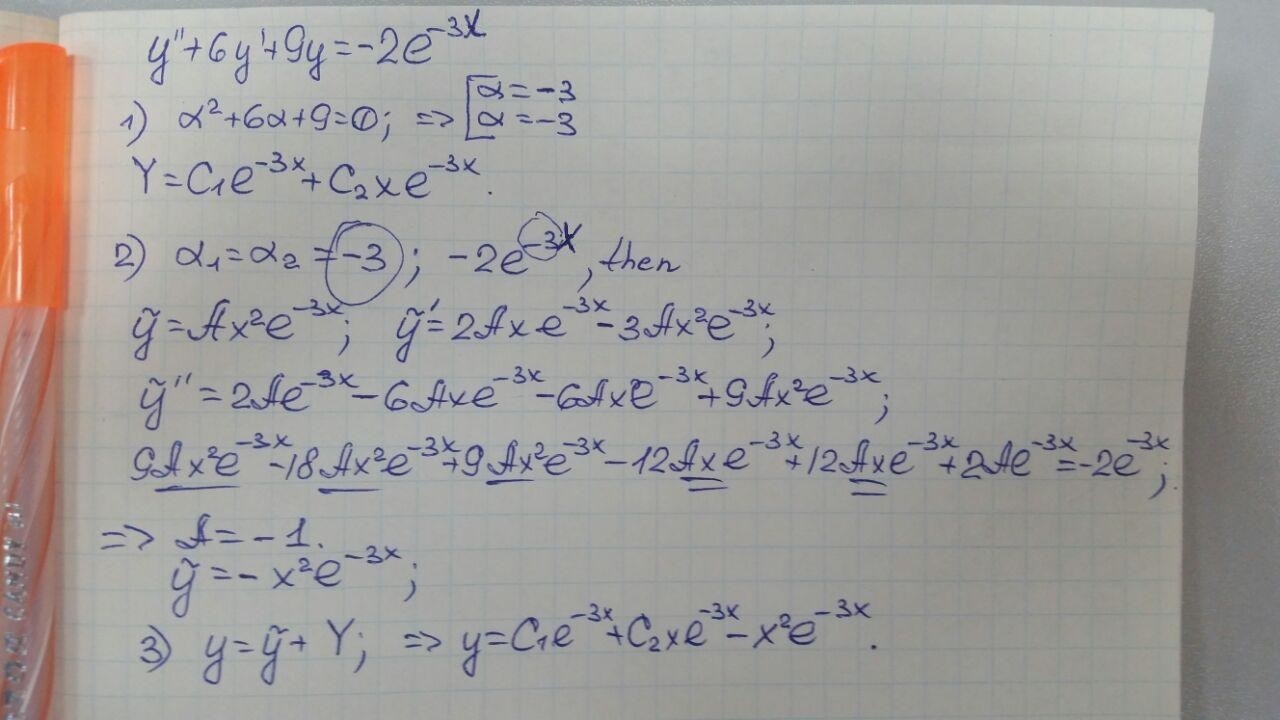 y''+6y'+9y=-2e^{-3x}
1) α²+6α+9=0; => [α=-3
α=-3
Y=C₁e^{-3x}+C₂xe^{-3x}.
2) α₁=α₂=-3; -2e^{-3x}, then
ỹ=Ax²e^{-3x}; ỹ'=2Axe^{-3x}-3Ax²e^{-3x};
ỹ''=2Ae^{-3x}-6Axe^{-3x}-6Axe^{-3x}+9Ax²e^{-3x};
9Ax²e^{-3x}-18Ax²e^{-3x}+9Ax²e^{-3x}-12Axe^{-3x}+12Axe^{-3x}+2Ae^{-3x}=-2e^{-3x};
=> A=-1.
ỹ=-x²e^{-3x};
3) y=ỹ+Y; => y=C₁e^{-3x}+C₂xe^{-3x}-x²e^{-3x}.